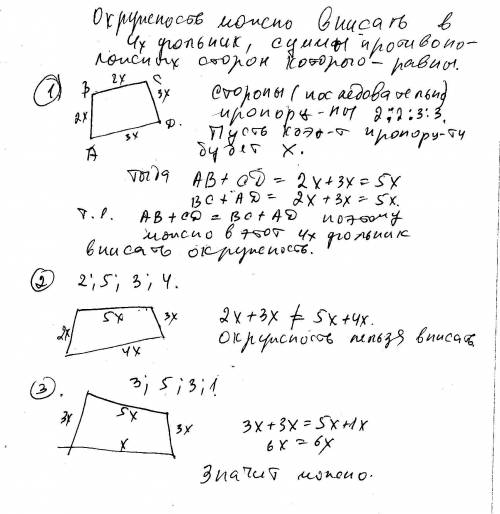 Окружность можно вписать в
4х угольник, суммы противопо-
ложных сторон которого - равны.
① B 2x C Стороны (последовательн)
2x 3x пропорц-ны 2:2:3:3.
D. Пусть коэф-т пропорц-ти
A 3x будет x.
Тогда AB + CD = 2x + 3x = 5x
BC + AD = 2x + 3x = 5x.
Т.к. AB + CD = BC + AD поэтому
можно в этот 4х угольник
вписать окружность.
② 2; 5; 3; 4.
5x 3x 2x + 3x ≠ 5x + 4x.
2x 4x Окружность нельзя вписать
③. 3; 5; 3; 1.
3x 5x 3x 3x + 3x = 5x + 1x
x 6x = 6x
Значит можно.